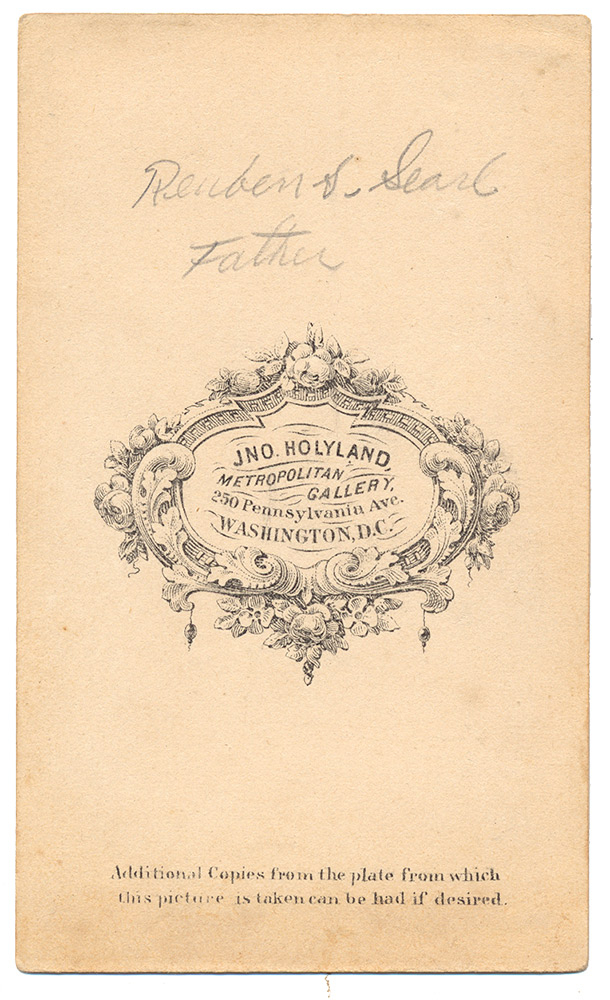 Reuben S. Searl
Father
JNO. HOLYLAND,
METROPOLITAN
GALLERY,
250 Pennsylvania Ave.
WASHINGTON, D.C.
Additional Copies from the plate from which
this picture is taken can be had if desired.